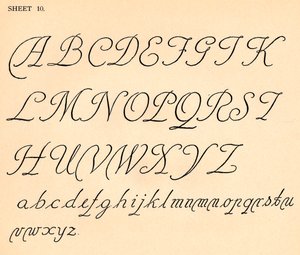 SHEET 10.
ABCDEFGIK
LMNOPQRST
HUVWXYZ
abcdefghijklmnmnopqrstu
vwxyz.